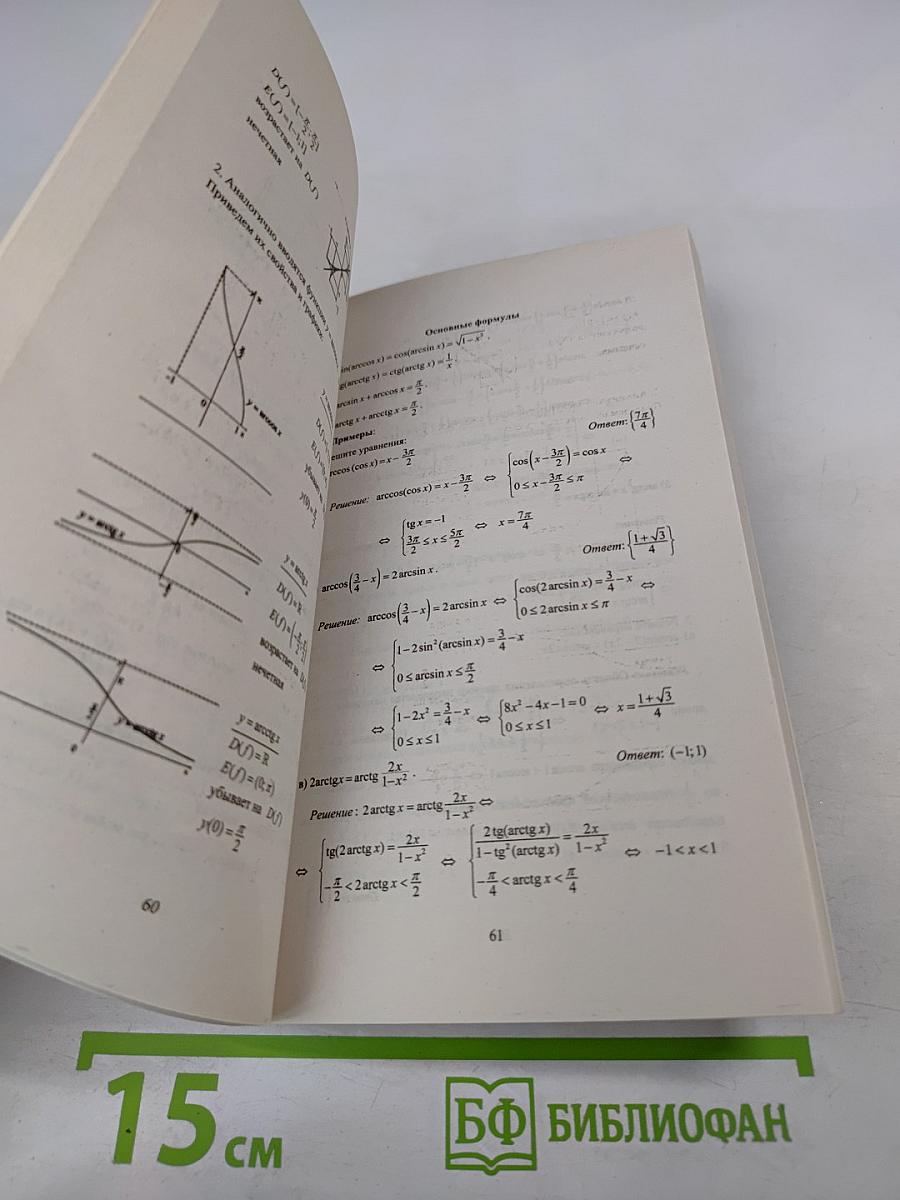 D(f) = [-π/2; π/2]
E(f) = [-1; 1]
возрастает на D(f)
нечетная
2. Аналогично вводятся функции y =
Приведем их свойства и графики:
π
π/2
-1
0
1 x
y = arccos x
y(0) = π/2
π/2
y = arctg x
0
-π/2
x
y = arctg x
D(f) = R
E(f) = (-π/2; π/2)
возрастает на D(f)
нечетная
π
π/2
y = arcctg x
0
x
y = arcctg x
D(f) = R
E(f) = (0; π)
убывает на D(f)
y(0) = π/2
60
Основные формулы
in(arccos x) = cos(arcsin x) = √(1-x²).
g(arcctg x) = ctg(arctg x) = 1/x.
arcsin x + arccos x = π/2.
arctg x + arcctg x = π/2.
Примеры:
ешите уравнения:
rccos (cos x) = x - 3π/2
Ответ: {7π/4}
Решение: arccos(cos x) = x - 3π/2 ⇔ {cos(x - 3π/2) = cos x ⇔
0 ≤ x - 3π/2 ≤ π
⇔ {tg x = -1 ⇔ x = 7π/4
3π/2 ≤ x ≤ 5π/2
arccos(3/4 - x) = 2 arcsin x.
Ответ: {(1+√3)/4}
Решение: arccos(3/4 - x) = 2 arcsin x ⇔ {cos(2 arcsin x) = 3/4 - x ⇔
0 ≤ 2 arcsin x ≤ π
⇔ {1 - 2sin²(arcsin x) = 3/4 - x
0 ≤ arcsin x ≤ π/2
⇔ {1 - 2x² = 3/4 - x ⇔ {8x² - 4x - 1 = 0 ⇔ x = (1+√3)/4
0 ≤ x ≤ 1 0 ≤ x ≤ 1
в) 2arctgx = arctg 2x/(1-x²).
Ответ: (-1; 1)
Решение: 2 arctg x = arctg 2x/(1-x²) ⇔
⇔ {tg(2 arctg x) = 2x/(1-x²) ⇔ {2 tg(arctg x)/(1-tg²(arctg x)) = 2x/(1-x²) ⇔ -1 < x < 1
-π/2 < 2 arctg x < π/2 -π/4 < arctg x < π/4
61
15 см
БФ БИБЛИОФАН